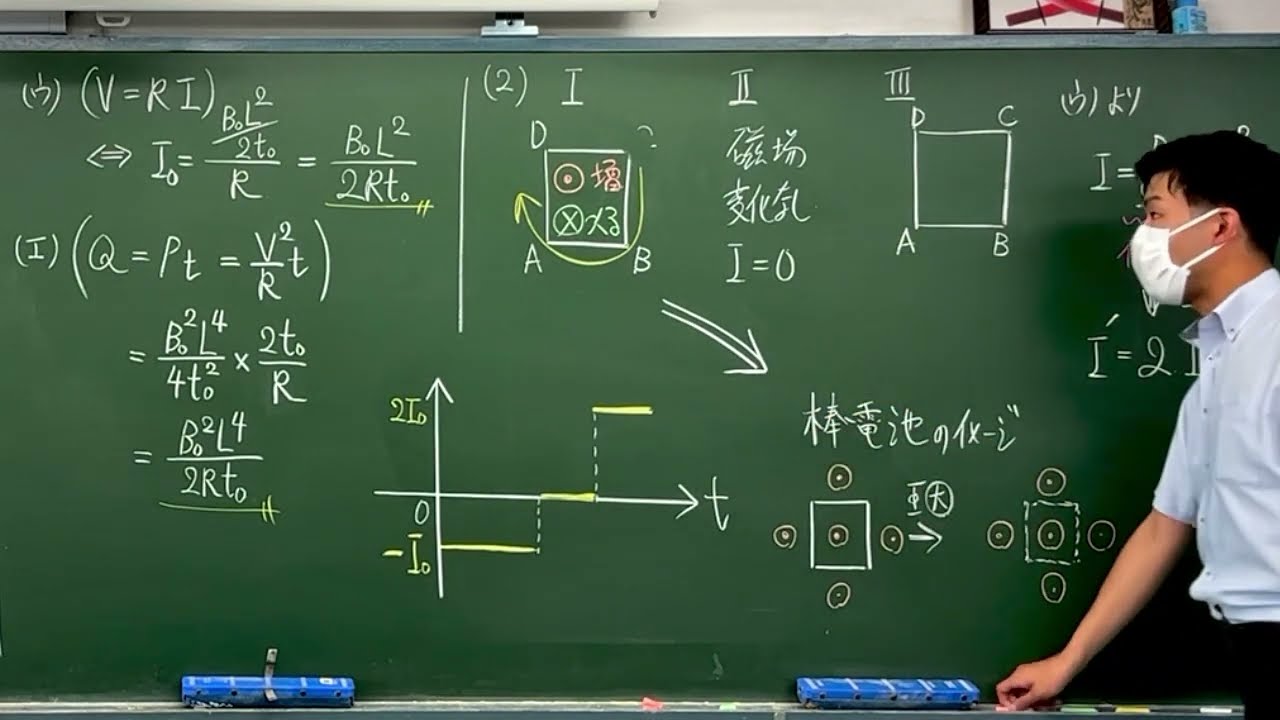 (ウ) (V=RI)
⇔ I₀ = (B₀L²/2t₀)/R = B₀L²/2Rt₀
(エ) (Q = Pt = V²/R t)
= B₀²L⁴/4t₀² × 2t₀/R
= B₀²L⁴/2Rt₀
(2) I
D
⊙ 増
⊗
A B
II
磁場
変化なし
I=0
III
D C
A B
(ウ)より
I=
I′=2.I
2I₀
0
-I₀
t
棒電池のイメージ